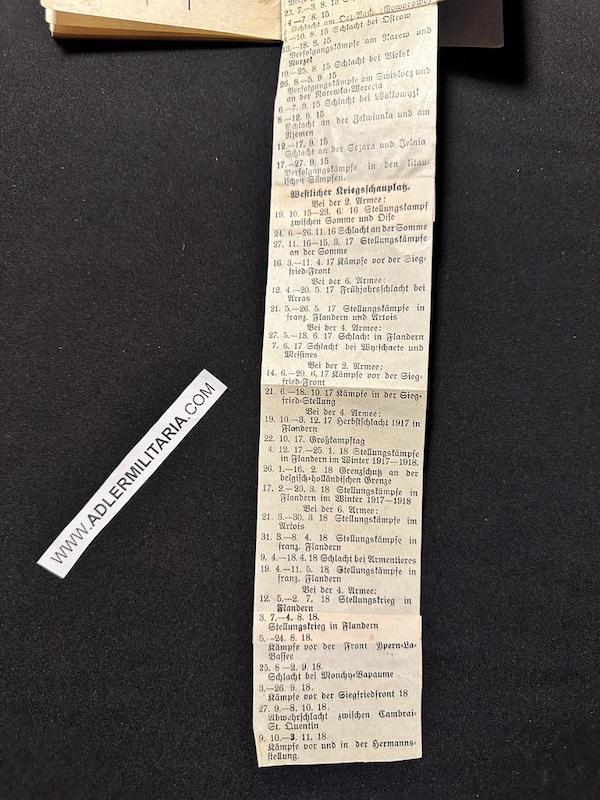 23. 7.—3. 8. 15
4.—7. 8. 15
Schlacht am Orz-Bach (Goworowo)
4.—10. 8. 15 Schlacht bei Ostrow
13.—18. 8. 15
Verfolgungskämpfe am Narew und
Nurzek
19.—25. 8. 15 Schlacht bei Bielsk
26. 8.—5. 9. 15
Verfolgungskämpfe am Swislocz und
an der Narewka-Werecia
6.—7. 9. 15 Schlacht bei Wolkowyzk
8.—12. 9. 15
Schlacht an der Zelwianka und am
Njemen
12.—17. 9. 15
Schlacht an der Sczara und Jelnia
17.—27. 9. 15
Verfolgungskämpfe in den litau-
ischen Sümpfen.
Westlicher Kriegsschauplatz.
Bei der 2. Armee:
19. 10. 15—23. 6. 16 Stellungskampf
zwischen Somme und Oise
24. 6.—26. 11. 16 Schlacht an der Somme
27. 11. 16—15. 3. 17 Stellungskämpfe
an der Somme
16. 3.—11. 4. 17 Kämpfe vor der Sieg-
fried-Front
Bei der 6. Armee:
12. 4.—20. 5. 17 Frühjahrsschlacht bei
Arras
21. 5.—26. 5. 17 Stellungskämpfe in
franz. Flandern und Artois
Bei der 4. Armee:
27. 5.—13. 6. 17 Schlacht in Flandern
7. 6. 17 Schlacht bei Wytschaete und
Messines
Bei der 2. Armee:
14. 6.—20. 6. 17 Kämpfe vor der Sieg-
fried-Front
21. 6.—18. 10. 17 Kämpfe in der Sieg-
fried-Stellung
Bei der 4. Armee:
19. 10.—3. 12. 17 Herbstschlacht 1917 in
Flandern
22. 10. 17. Großkampftag
4. 12. 17.—25. 1. 18 Stellungskämpfe
in Flandern im Winter 1917—1918.
26. 1.—16. 2. 18 Grenzschutz an der
belgisch-holländischen Grenze
17. 2.—20. 3. 18 Stellungskämpfe in
Flandern im Winter 1917—1918
Bei der 6. Armee:
21. 3.—30. 3. 18 Stellungskämpfe im
Artois
31. 3.—8. 4. 18 Stellungskämpfe in
franz. Flandern
9. 4.—18. 4. 18 Schlacht bei Armentieres
19. 4.—11. 5. 18 Stellungskämpfe in
franz. Flandern
Bei der 4. Armee:
12. 5.—2. 7. 18 Stellungskrieg in
Flandern
3. 7.—4. 8. 18.
Stellungskrieg in Flandern
5.—24. 8. 18.
Kämpfe vor der Front Ypern-La-
Bassee
25. 8.—2. 9. 18.
Schlacht bei Monchy-Bapaume
3.—26. 9. 18.
Kämpfe vor der Siegfriedfront 18
27. 9.—8. 10. 18.
Abwehrschlacht zwischen Cambrai-
St. Quentin
9. 10.—3. 11. 18.
Kämpfe vor und in der Hermanns-
stellung.
WWW.ADLERMILITARIA.COM